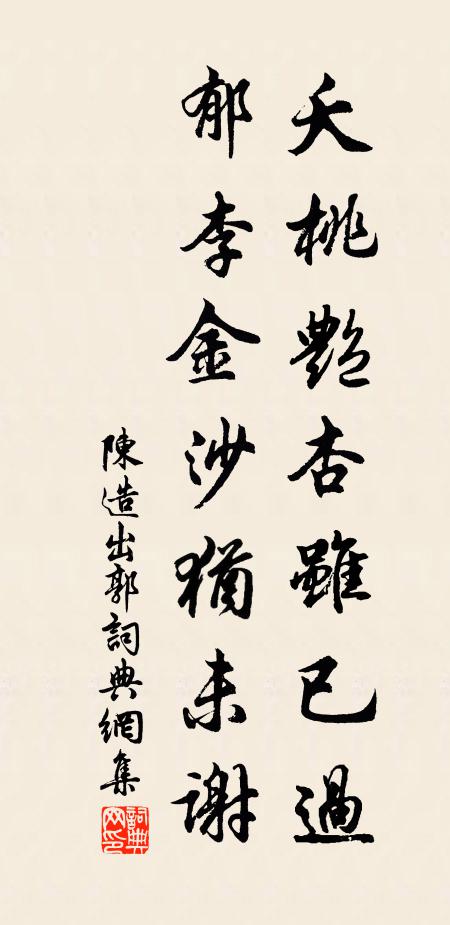 夭桃艷杏雖已過
郁李金沙猶未謝
陳造出郭詞典網集
詞典网印